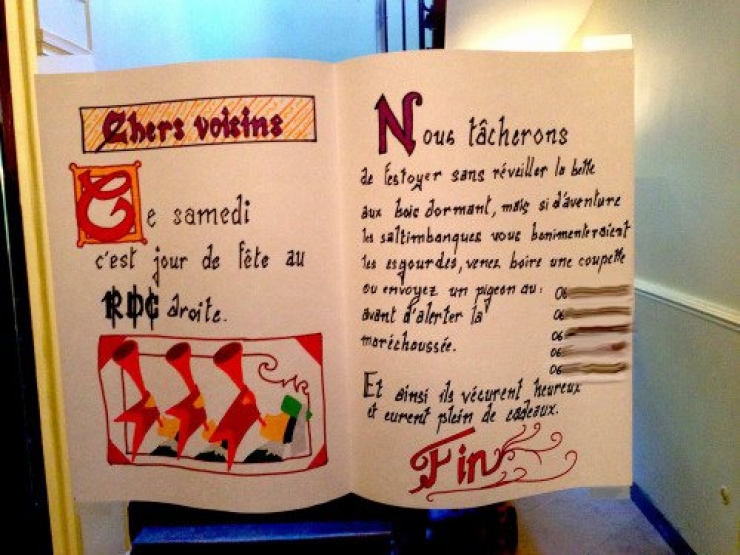 Chers voisins
Ce samedi
c'est jour de fête au
RDC droite.
Nous tâcherons
de festoyer sans réveiller la belle
aux bois dormant, mais si d'aventure
les saltimbanques vous bonimenteraient
les esgourdes, venez boire une coupette
ou envoyez un pigeon au : 06
avant d'alerter la 06
maréchaussée. 06
06
06
Et ainsi ils vécurent heureux
et eurent plein de cadeaux.
Fin